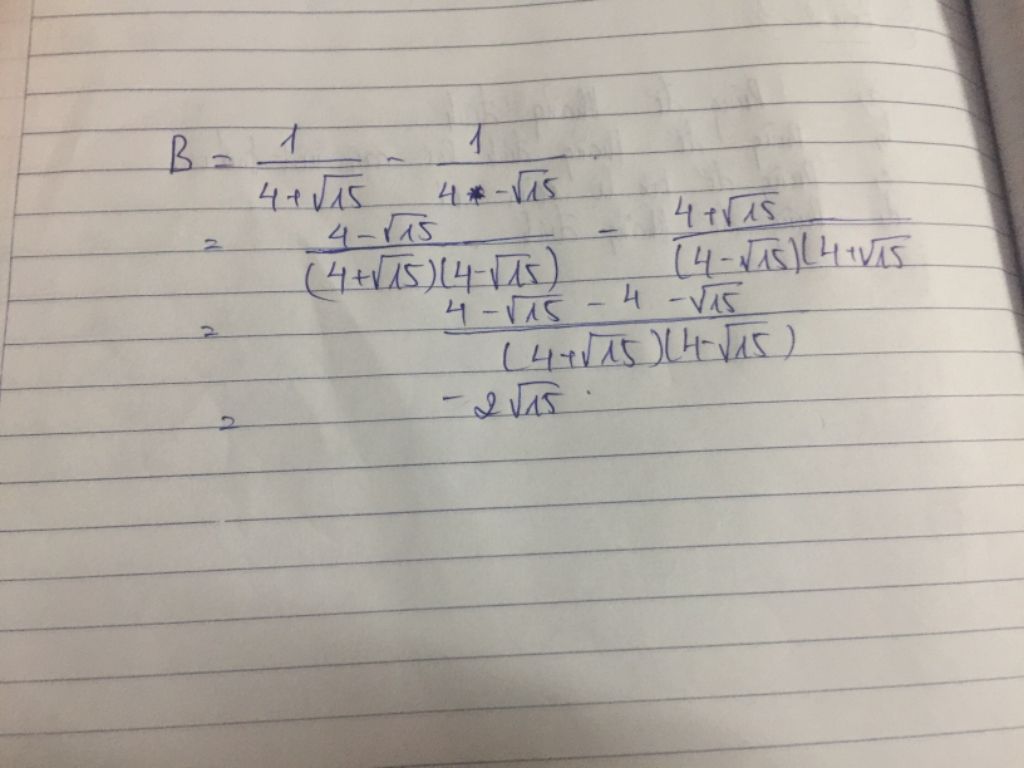 B = \frac{1}{4+\sqrt{15}} - \frac{1}{4-\sqrt{15}}
= \frac{4-\sqrt{15}}{(4+\sqrt{15})(4-\sqrt{15})} - \frac{4+\sqrt{15}}{(4-\sqrt{15})(4+\sqrt{15}}
= \frac{4-\sqrt{15} - 4 - \sqrt{15}}{(4+\sqrt{15})(4-\sqrt{15})}
= -2\sqrt{15}.